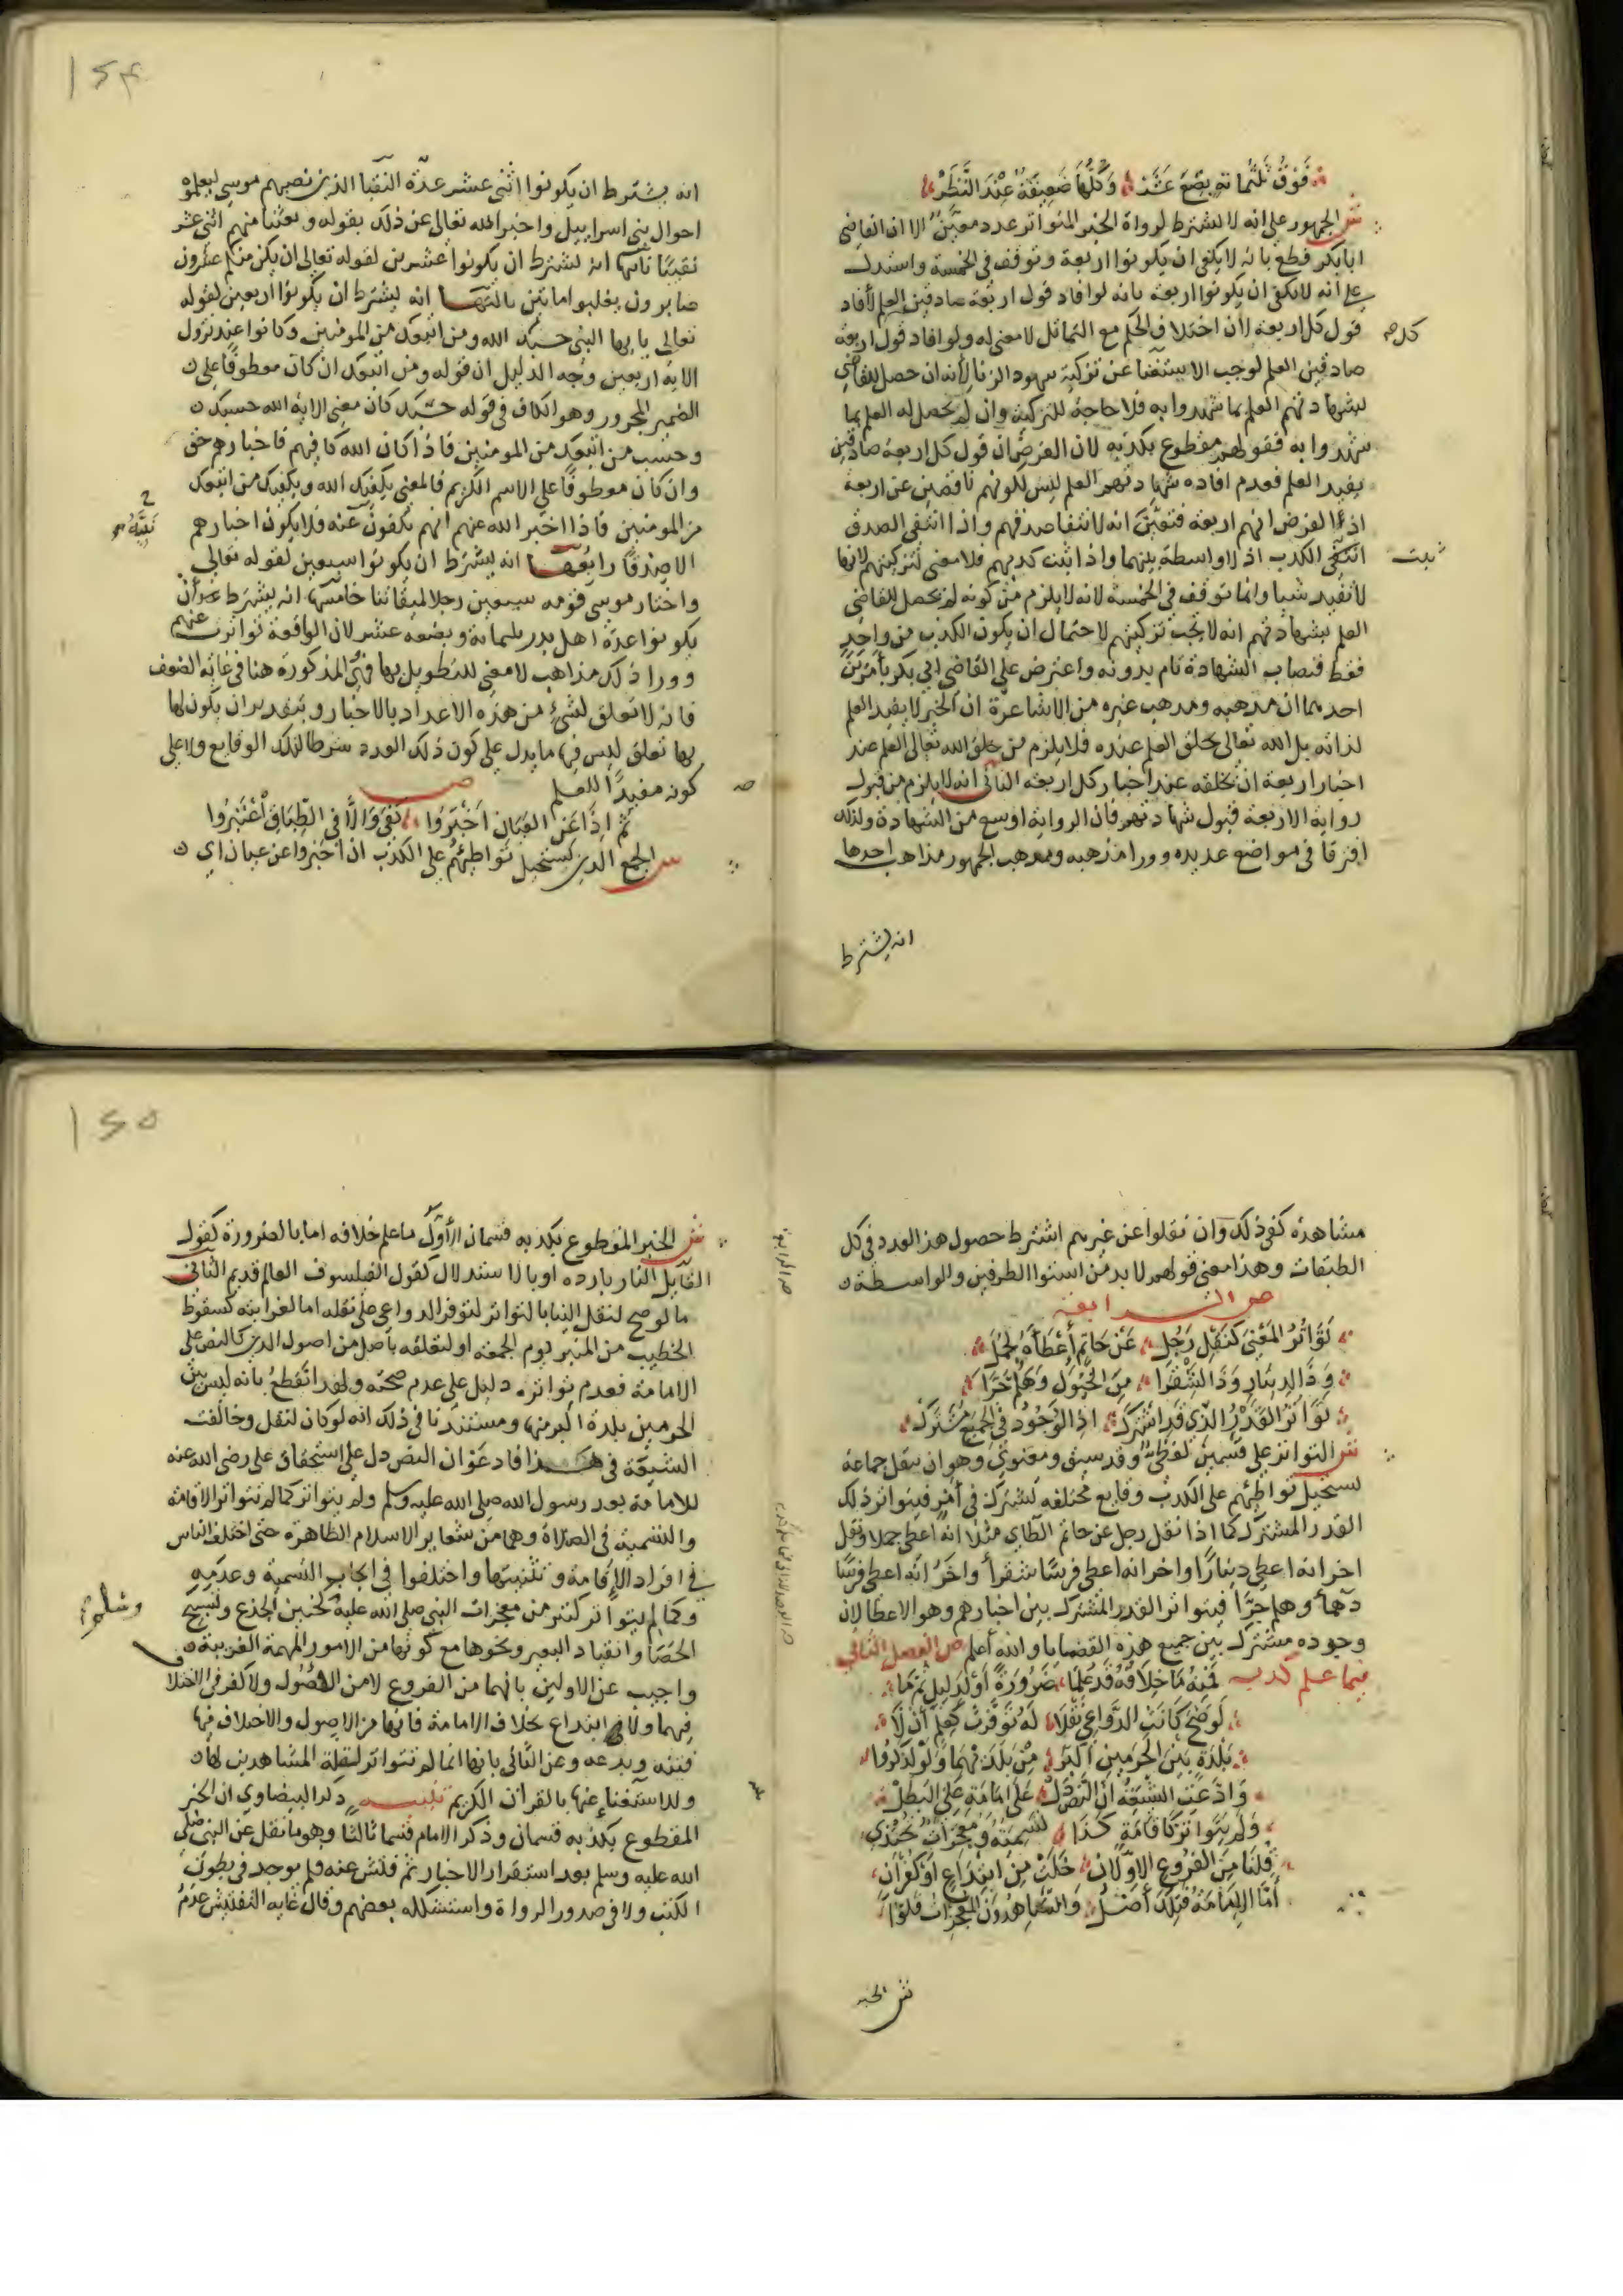 فَوْقُ ثَلثُمائةٍ بِضْعَ عَشَر وَكُلُّهَا ضَعِيفَةٌ عِنْدَ النَّظَرْ
ش الجمهور على انه لا يشترط لرواة الخبر المتواتر عدد معين الا ان القاضى
ابا بكر قطع بانه لا يكفى ان يكونوا اربعة وتوقف فى الخمسة واستدل
على انه لا يكفى ان يكونوا اربعة بانه لو افاد قول اربعة صادقين العلم لأفاد
قول كل اربعة لان اختلاف الحكم مع التماثل لا معنى له ولو افاد قول اربعة
صادقين العلم لوجب الاستغنا عن تزكية شهود الزنا لأنه ان حصل للقاضى
بشهادتهم العلم بما شهدوا به فلا حاجة للتزكية وان لم يحصل له العلم بما
شهدوا به فقولهم مقطوع بكذبه لان الفرض ان قول كل اربعة صادقين
يفيد العلم فعدم افاده شهادتهم العلم ليس لكونهم ناقصين عن اربعة
اذ الفرض انهم اربعة فتعين انه لانتفا صدقهم واذا انتفى الصدق
انتفى الكذب اذ لا واسطة بينهما واذا ثبت كذبهم فلا معنى لتزكيتهم لانها
ثبت
لا تفيد شيا وانما توقف فى الخمسة لانه لا يلزم من كونه لم يحصل للقاضى
العلم بشهادتهم انه لا يجب تزكيتهم لاحتمال ان يكون الكذب من واحد
فقط فنصاب الشهادة تام بدونه واعترض على القاضى ابي بكر بأمرين
احدهما ان مذهبه ومذهب غيره من الاشاعرة ان الخبر لا يفيد العلم
لذاته بل الله تعالى يخلق العلم عنده فلا يلزم من خلق الله تعالى العلم عند
اخبار اربعة ان يخلقه عند اخبار كل اربعة الثانى انه لا يلزم من قبول
رواية الاربعة قبول شهادتهم فان الرواية اوسع من الشهادة ولذلك
افترقا فى مواضع عديده وورا مذهبه ومذهب الجمهور مذاهب احدها
انه يشترط
انه يشترط ان يكونوا اثنى عشر عدة النقبا الذين نصبهم موسى ليعلموه
احوال بنى اسرايل واخبر الله تعالى عن ذلك بقوله وبعثنا منهم اثنى عشر
نقيبًا ثانيها انه يشترط ان يكونوا عشرين لقوله تعالى ان يكن منكم عشرون
صابرون يغلبوا مائتين ثالثها انه يشترط ان يكونوا اربعين لقوله
تعالى يا ايها النبى حسبك الله ومن اتبعك من المومنين وكانوا عند نزول
الاية اربعين وجه الدليل ان قوله ومن اتبعك ان كان معطوفًا على
الضمير المجرور وهو الكاف فى قوله حسبك كان معنى الاية الله حسبك
وحسب من اتبعك من المومنين فاذا كان الله كافيهم فاخبارهم حق
وان كان معطوفًا على الاسم الكريم فالمعنى يكفيك الله ويكفيك من اتبعك
من المومنين فاذا اخبر الله عنهم انهم يكفون عنه فلا يكون اخبارهم
الا صدقًا رابعها انه يشترط ان يكونوا سبعين لقوله تعالى
واختار موسى قومه سبعين رجلا لميقاتنا خامسها انه يشترط ان
يكونوا عدة اهل بدر ثلثمائة وبضعة عشر لان الواقعة تواترت عنهم
وورا ذلك مذاهب لا معنى للتطويل بها فهى المذكورة هنا فى غاية الضعف
فانه لا تعلق لشئ من هذه الاعداد بالاخبار وبتقدير ان يكون لها
بها تعلق ليس فيها ما يدل على كون ذلك العدد شرطا لتلك الوقايع ولا على
كونه مفيدًا للعلم ص
ثم اذا عَنِ العَيَان اخْبَرُوا كفى وَالَّا فى الطِّبَاقِ اعْتَبِرُوا
ش الجمع الذى يستحيل تواطئهم على الكذب ان اخبروا عن عيان اى
مشاهدة كفى ذلك وان نقلوا عن غيرهم اشترط حصول هذا العدد فى كل
الطبقات وهذا معنى قولهم لا بد من استوا الطرفين والواسطة
ص الرابعة
تَوَاتُرُ المَعْنى كَنَقْلِ رَجُلِ عَنْ حَاتِمٍ أَعْطَاهُ لِجَمَلِ
وَذَا لدِينَارٍ وَذَا لشَقْرَا مِنَ الخُيُولِ وَهَلُمَّ جَرَّا
تَوَاتَرَ القَدْرُ الَّذِي قَدِ اشْتَرَكْ اذِ الوُجُودُ فى الجَمِيعِ مُشْتَرَكْ
ش التواتر على قسمين لفظى وقد سبق ومعنوى وهو ان ينقل جماعة
يستحيل تواطئهم على الكذب وقايع مختلفه يشترك فى أمر فيتواتر ذلك
القدر المشترك كما اذا نقل رجل عن حاتم الطاى مثلا انه اعطى جملا ونقل
اخر انه اعطى دينارًا واخر انه اعطى فرسًا شقرأ واخر انه اعطى فرسًا
دهمأ وهلم جرًا فيتواتر القدر المشترك بين اخبارهم وهو الاعطا لان
وجوده مشترك بين جميع هذه القضايا والله أعلم ص الفصل الثانى
فيما علم كذبه فَمِنْهُ مَا خِلَافُهُ قَدْ عُلِمَا ضَرُورَةً أَوْ لِدَلِيلٍ ثُمَّ مَا
لَو صَحَّ كَانَتِ الدَّوَاعِي نَقْلَا لَهُ تَوَفَّرَتْ كَعِلْمِ أَنْ لَا
بَلْدَةَ بَيْنَ الحَرَمَيْنِ أَكْبَرُ مِنْ بَلْدَتَيْهِمَا وَلَوْ لَذَكَرُوا
وَادَّعَتِ الشِّيعَةُ انَّ النَّصَّ دَلْ عَلَى امَامَةِ عَلِيِّ البَطَلْ
وَلَمْ يَتَوَاتَرْ كَاقَامَةٍ كَذَا تَسْمِيَةٌ وَمُعْجِزَاتٌ تُحْتَذى
قلنَا مِنَ الفُرُوعِ الاوَّلَانِ خَلَتْ مِنِ ابْتِدَاعٍ اوْ كُفْرَانِ
أَمَّا الِامَامَةُ فَتِلْكَ أَصْلُ وَالشَّاهِدُونَ المُعْجِزَاتِ قَلُّوا
ش الخبر
ش الخبر المقطوع بكذبه قسمان الأول ما علم خلافه اما بالضرورة كقول
القايل النار بارده او بالاستدلال كقول الفيلسوف العالم قديم الثانى
ما لو صح لنقل الينا بالتواتر لتوفر الدواعى على نقله اما لغرابته كسقوط
الخطيب من المنبر يوم الجمعة او لتعلقه بأصل من اصول الدين كالنص على
الامامة فعدم تواتره دليل على عدم صحته ولهذا نقطع بانه ليس بين
الحرمين بلدة اكبر منها ومستندنا فى ذلك انه لو كان لنقل وخالفت
الشيعة فى هذا فادعوا ان النص دل على استحقاق على رضى الله عنه
للامامة بعد رسول الله صلى الله عليه وسلم ولم يتواتر كما لم تتواتر الاقامة
والتسمية فى الصلاة وهما من شعاير الاسلام الظاهرة حتى اختلف الناس
فى افراد الإقامة وتثنيتها واختلفوا فى ايجاب التسمية وعدمه
وكما لم يتواتر كثير من معجزات النبى صلى الله عليه كحنين الجذع وتسبيح
وسلم
الحصا وانقياد البعير ونحوها مع كونها من الامور المهمة الغريبة
واجيب عن الاولين بانهما من الفروع لا من الاصول ولا كفر فى الاختلا
فيهما ولا ابتداع بخلاف الامامة فانها من الاصول والاختلاف فيها
فتنه وبدعه وعن الثانى بانها انما لم تتواتر لقلة المشاهدين لها
وللاستغناء عنها بالقرآن الكريم تنبيه ذكر البيضاوى ان الخبر
المقطوع بكذبه قسمان وذكر الامام قسما ثالثا وهو ما نقل عن النبى صلى
الله عليه وسلم بعد استقرار الاخبار ثم فتش عنه فلم يوجد فى بطون
الكتب ولا فى صدور الرواة واستشكله بعضهم وقال غاية التفتيش عدم